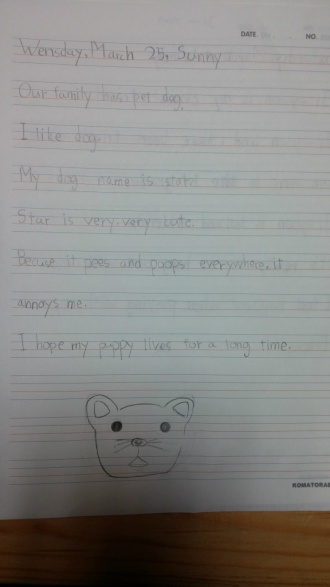 DATE
NO.
Wensday, March 25, Sunny
Our family has pet dog.
I like dog.
My dog name is
Star is very very cute.
Becuse it pees and poops everywhere, it
annoys me.
I hope my puppy lives for a long time.